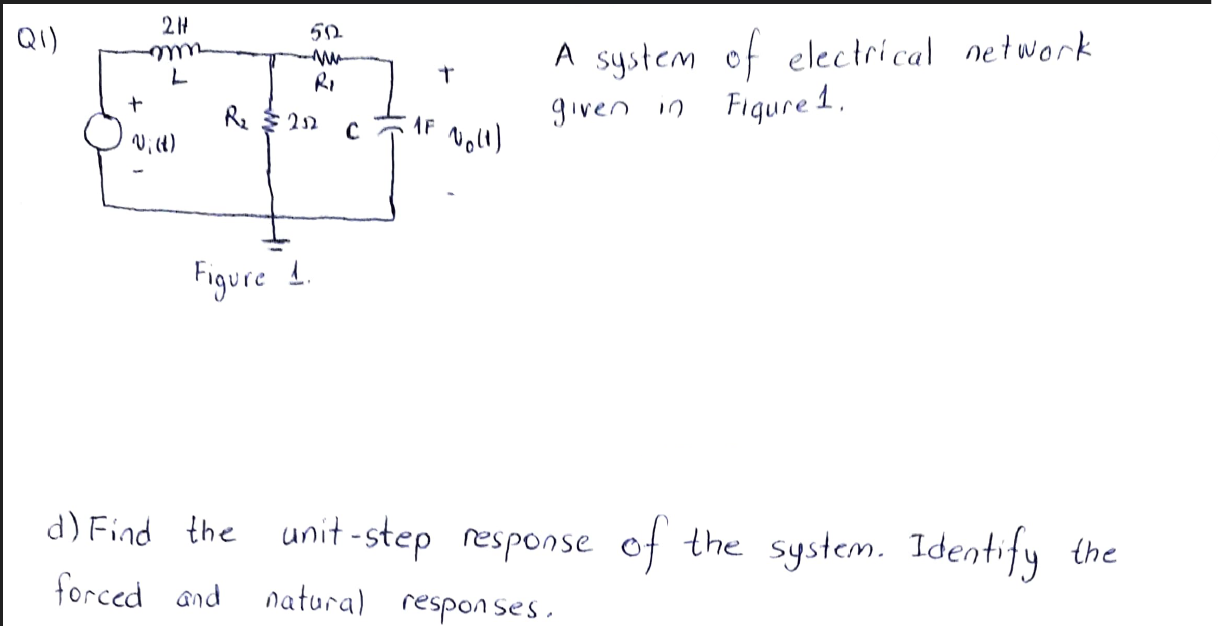 Q1)
2H
L
5Ω
R1
+
vi(t)
-
R2
2Ω
C
1F
+
vo(t)
-
Figure 1.
A system of electrical network
given in Figure 1.
d) Find the unit-step response of the system. Identify the
forced and natural responses.